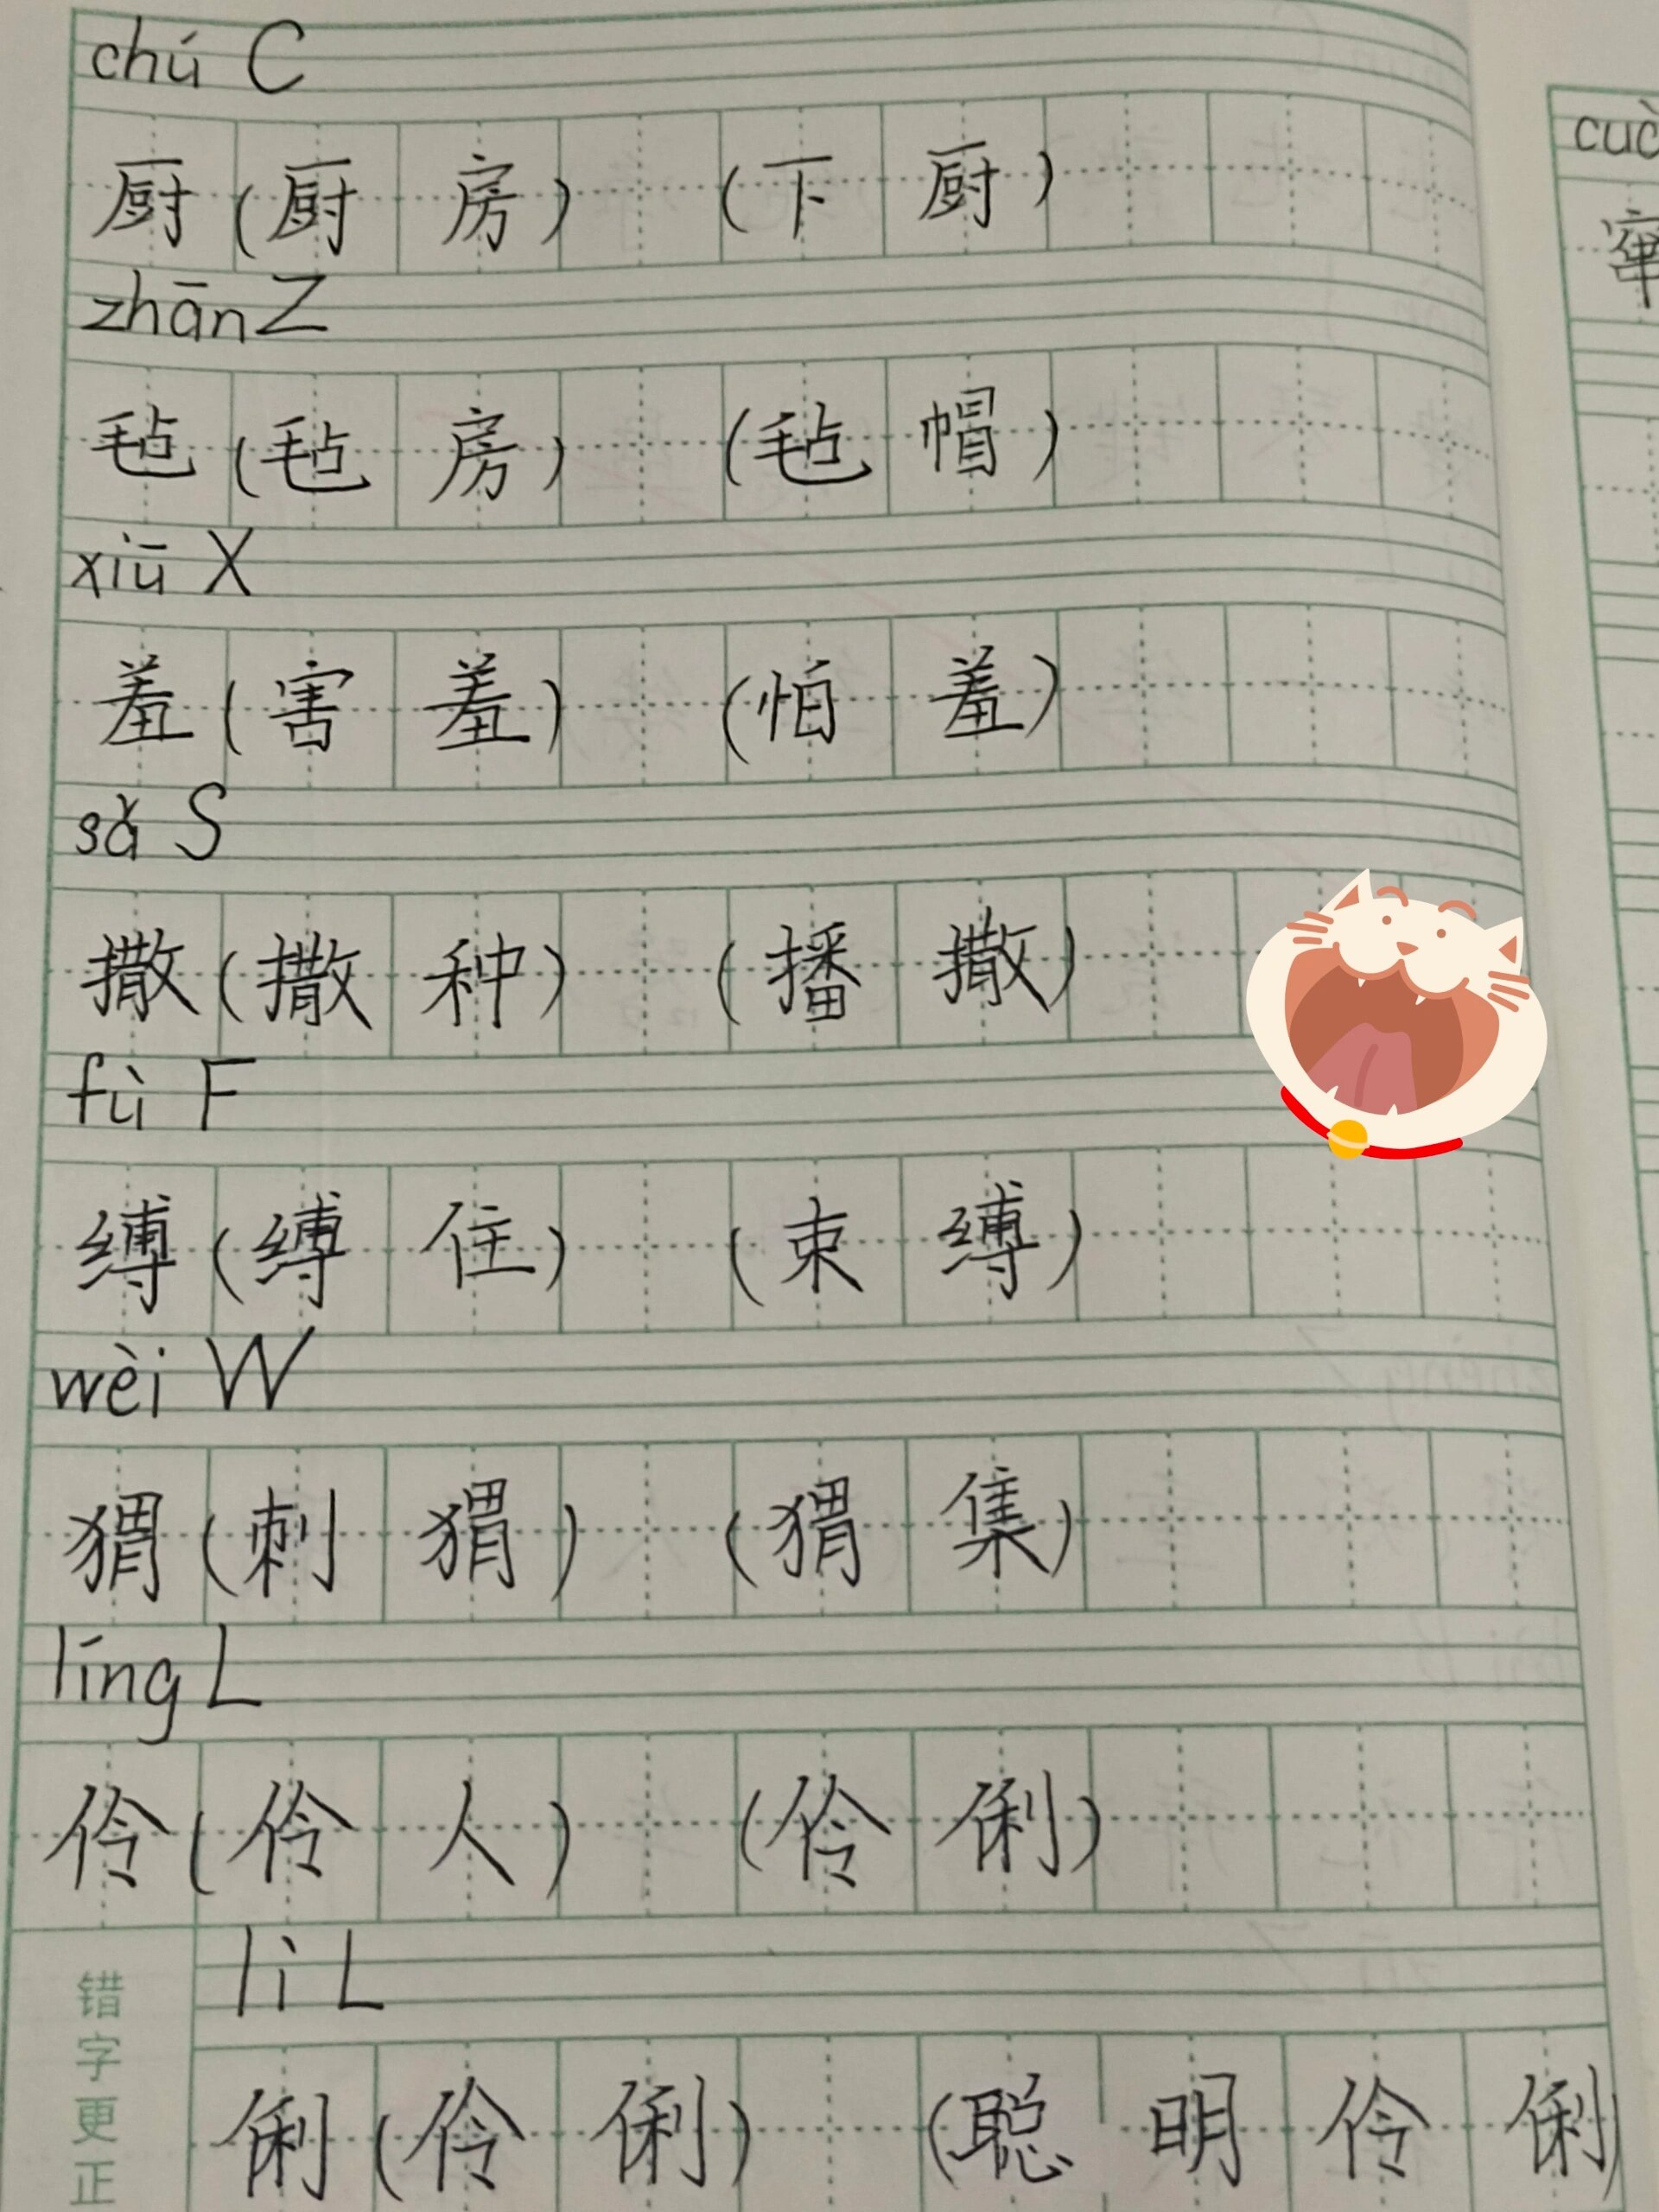 chú C
厨(厨房) (下厨)
zhān Z
毡(毡房) (毡帽)
xiū X
羞(害羞) (怕羞)
sǎ S
撒(撒种) (播撒)
fù F
缚(缚住) (束缚)
wèi W
猬(刺猬) (猬集)
líng L
伶(伶人) (伶俐)
lì L
俐(伶俐) (聪明伶俐)
错字更正